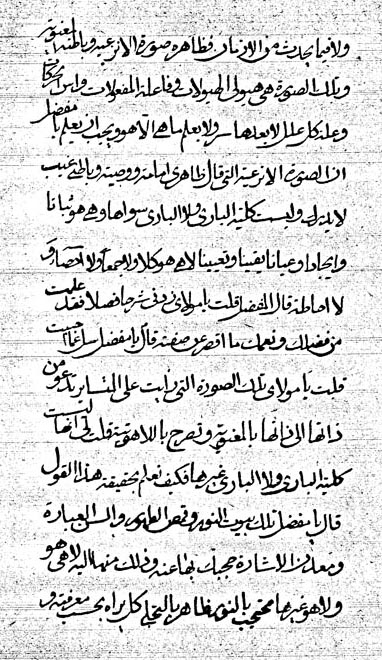 ولا فيما يحدث من الازمان فظاهره صورة الانزعية وباطنه المعنوية
وتلك الصورة هي هيولى الهيولات وفاعلة المفعولات واس الحركات
وعلة كل علل لا بعدها سر ولا يعلم ما هي الا هو ويجب ان يعلم يا مفضل
ان الصورة الانزعية التي قال ظاهري امامة ووصية وباطني غيب
لا يدرك وليست كلية الباري ولا الباري سواها وهي هو اثباتا
وايجادا وعيانا يقينا وتعيينا لا هي هو كلا ولا جمعا ولا احصاء و
لا احاطة قال المفضل قلت يا مولاي زدني شرحا فضلا فقد علمت
من فضلك ونعمك ما اقصر عن صفته قال يا مفضل سل عما احببت
قلت يا مولاي تلك الصورة التي رايت على المنابر تدعو من
ذاتها الى ذاتها بالمعنوية وتصرح باللاهوتية قلت لي انها ليست
كلية الباري ولا الباري غيرها فكيف نعلم بحقيقة هذا القول
قال يا مفضل تلك بيوت النور وقمص الظهور والسن العبارة
ومعدن الاشارة حجبك بها عنه ودلك منها اليه لا هي هو
ولا هو غيرها محتجب بالنور ظاهر بالتجلي كل يراه بحسب معرفته و